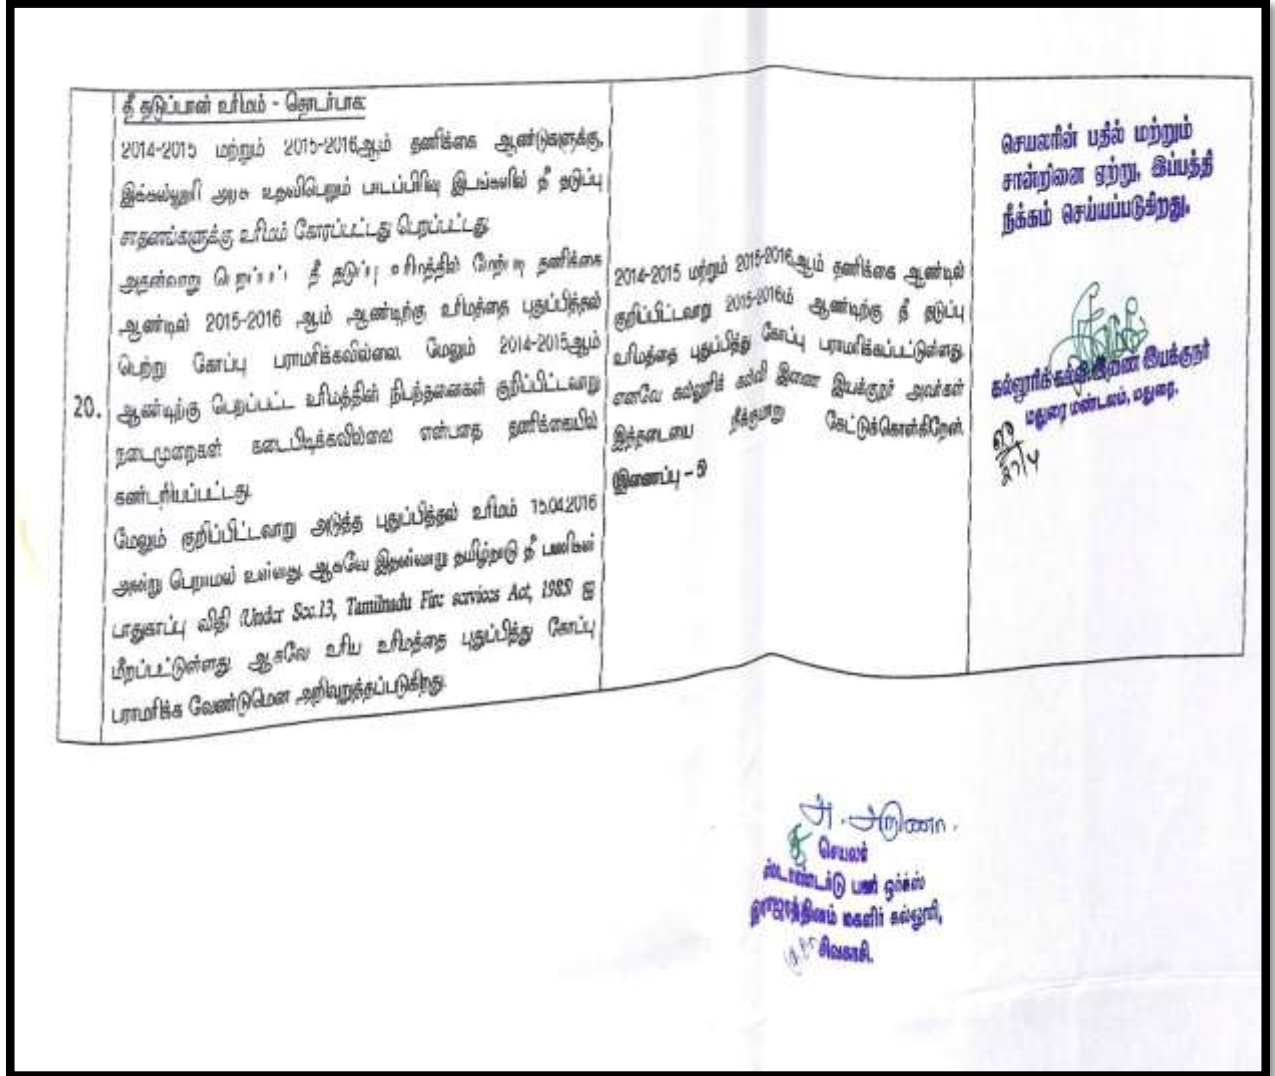 தீ தடுப்பான் உரிமம் - தொடர்பாக:
2014-2015 மற்றும் 2015-2016ஆம் தணிக்கை ஆண்டுகளுக்கு,
இக்கல்லூரி அரசு உதவிபெறும் பாடப்பிரிவு இடங்களில் தீ தடுப்பு
சாதனங்களுக்கு உரிமம் கோரப்பட்டது பெறப்பட்டது.
அதன்வாறு தீ தடுப்பு உரிமத்தில் மேற்படி தணிக்கை
ஆண்டில் 2015-2016 ஆம் ஆண்டிற்கு உரிமத்தை புதுப்பித்தல்
பெற்று கோப்பு பராமரிக்கவில்லை. மேலும் 2014-2015ஆம்
20. ஆண்டிற்கு பெறப்பட்ட உரிமத்தின் நிபந்தனைகள் குறிப்பிட்டவாறு
நடைமுறைகள் கடைபிடிக்கவில்லை என்பதை தணிக்கையில்
கண்டறியப்பட்டது.
மேலும் குறிப்பிட்டவாறு அடுத்த புதுப்பித்தல் உரிமம் 15.04.2016
அன்று பெறாமல் உள்ளது. ஆகவே இதன்வாறு தமிழ்நாடு தீ பணிகள்
பாதுகாப்பு விதி (Under Sec.13, Tamilnadu Fire services Act, 1985) ஐ
மீறப்பட்டுள்ளது. ஆகவே உரிய உரிமத்தை புதுப்பித்து கோப்பு
பராமரிக்க வேண்டுமென அறிவுறுத்தப்படுகிறது.
2014-2015 மற்றும் 2015-2016ஆம் தணிக்கை ஆண்டில்
குறிப்பிட்டவாறு 2015-2016ம் ஆண்டிற்கு தீ தடுப்பு
உரிமத்தை புதுப்பித்து கோப்பு பராமரிக்கப்பட்டுள்ளது.
எனவே கல்லூரிக் கல்வி இணை இயக்குநர் அவர்கள்
இத்தடையை நீக்குமாறு கேட்டுக்கொள்கிறேன்.
(இணைப்பு – 5)
செயலரின் பதில் மற்றும்
சான்றினை ஏற்று, இப்பத்தி
நீக்கம் செய்யப்படுகிறது.
கல்லூரிக்கல்வி இணை இயக்குநர்
மதுரை மண்டலம், மதுரை.
அ. அருணா.
செயலர்
ஸ்டாண்டர்டு பயர் ஒர்க்ஸ்
இராஜரத்தினம் மகளிர் கல்லூரி,
சிவகாசி.